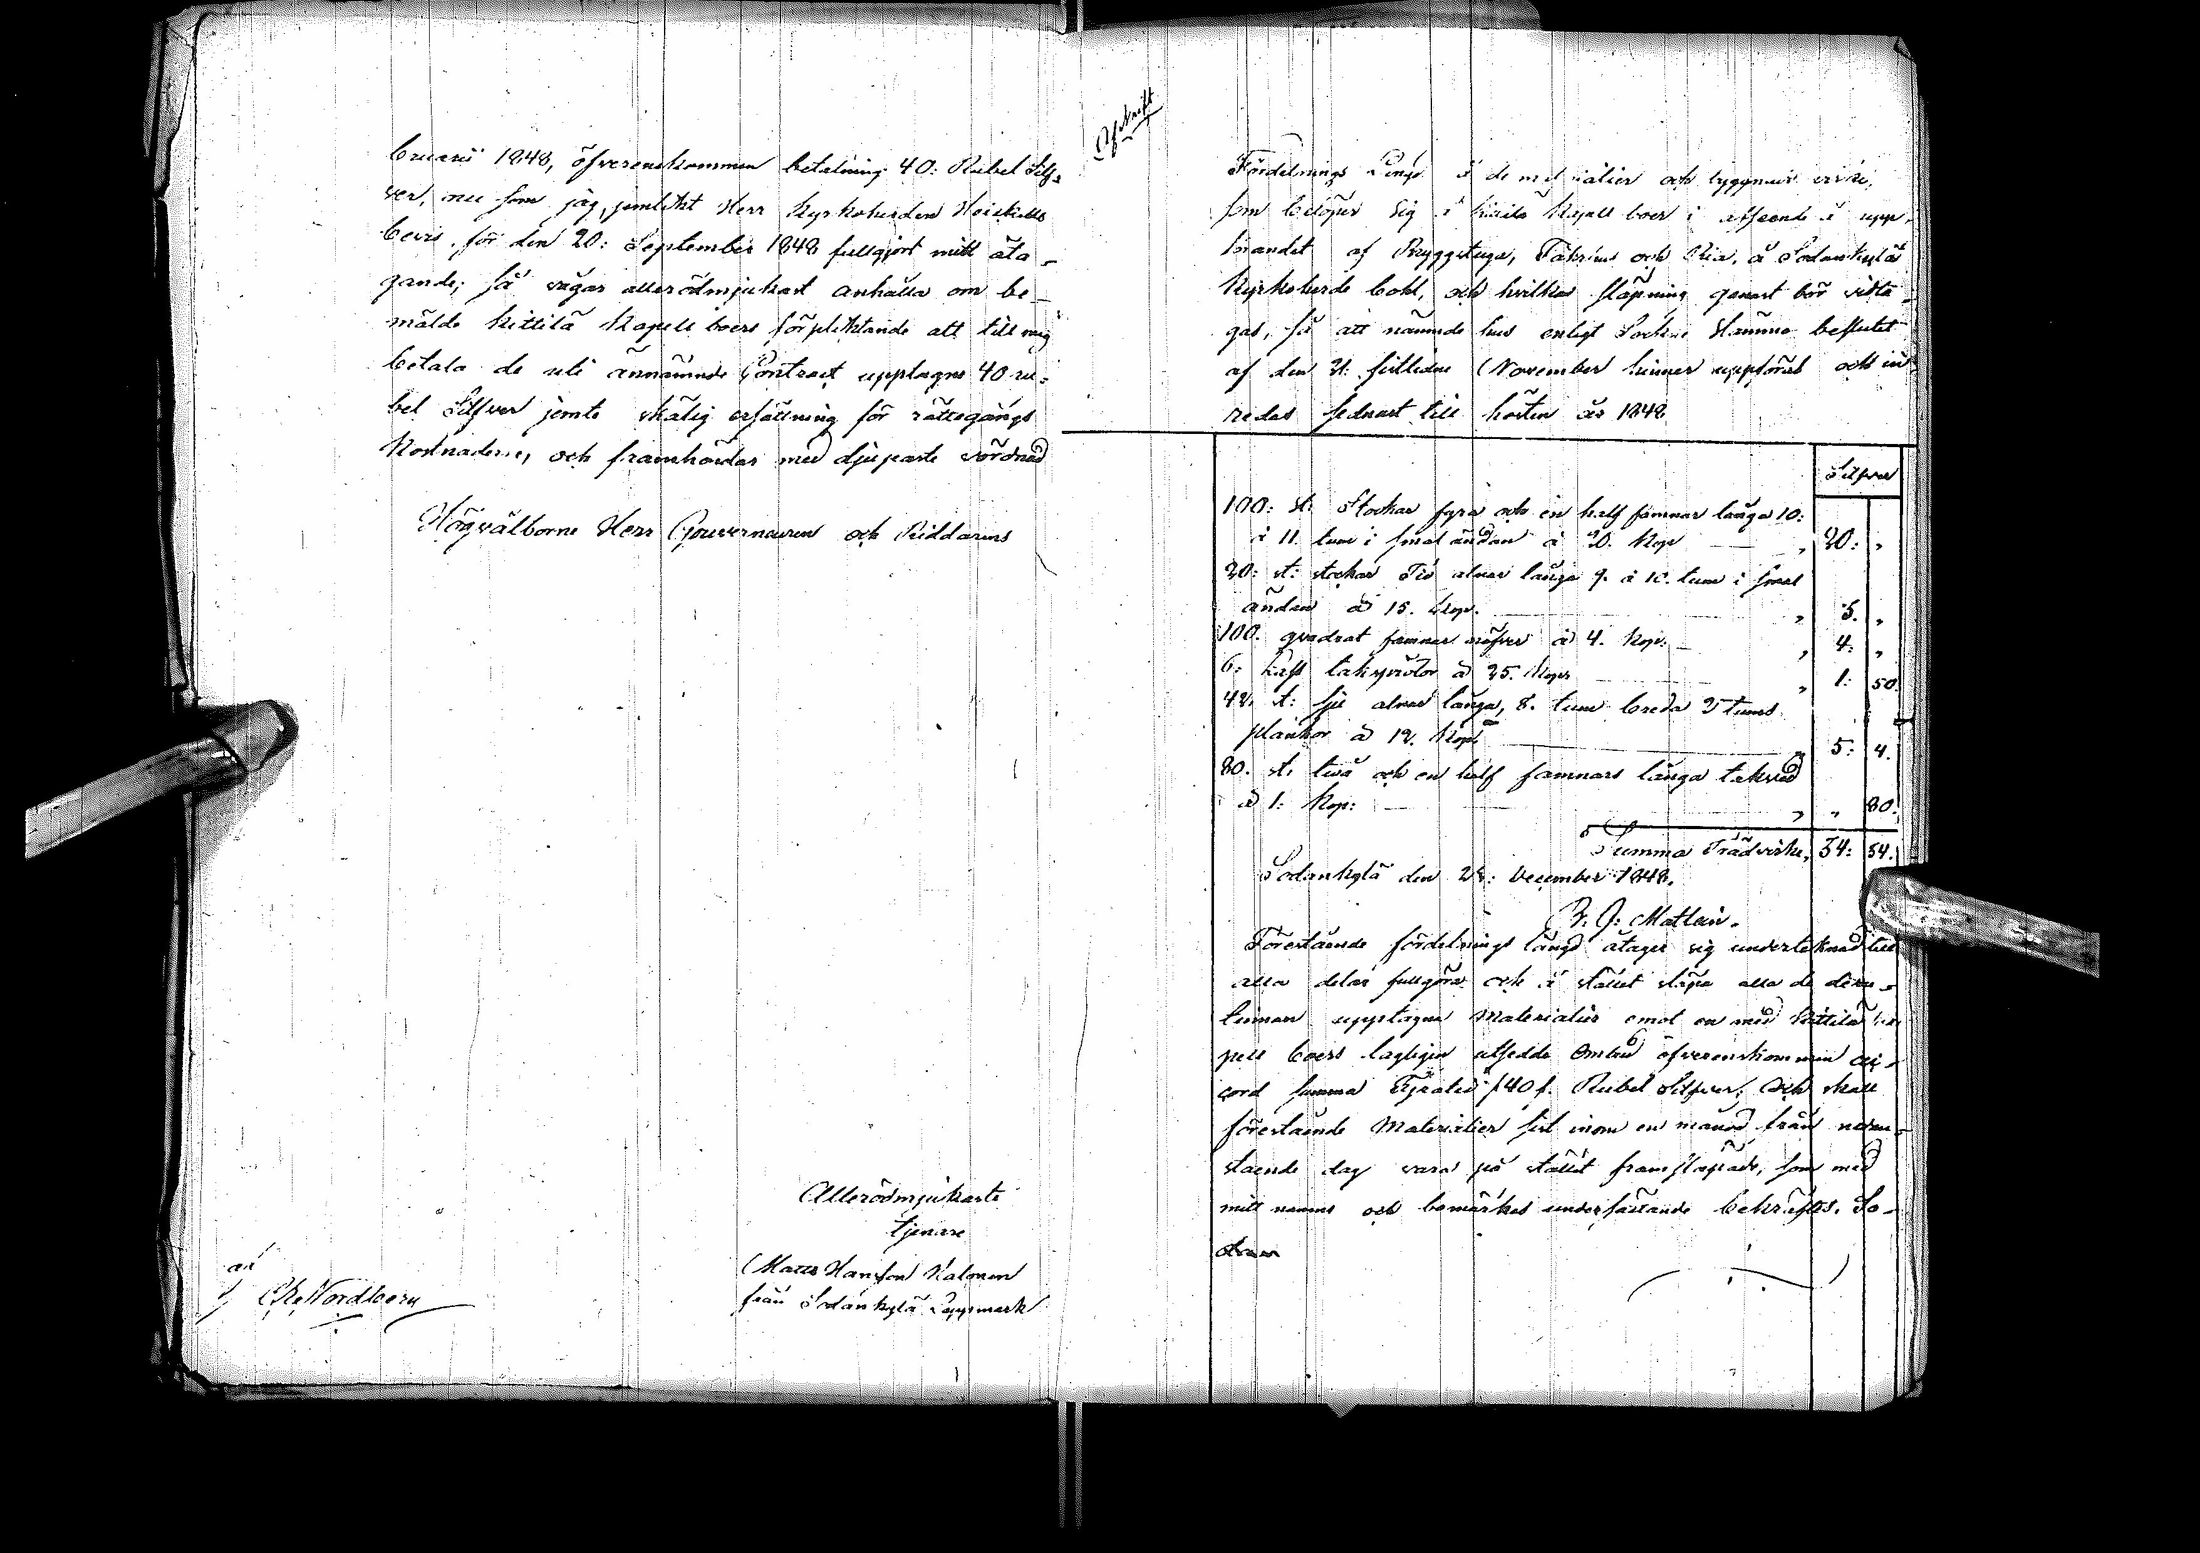 bruarii 1848, öfverenskommen betalning 40: Rubel Silf-
ver, nu som jag, jemlikt Herr Kyrkoherden Heickells
bevis, för den 20: September 1848 fullgjort mitt åta-
gande; så vågar allerödmjukast anhålla om be-
mälde Kittilä Kapell boers förpliktande att till mig
betala de uti ännämnde Contract upptagne 40 ru-
bel Silfver jemte skälig ersättning för rättegångs
Kostnaderne, och framhärdar med djupaste vördnad
Högvälborne Herr Gouverneuren och Riddarens
Allerödmjukaste
tjenare
Matts Hansson Halonen
från Sodankylä Lappmark
Nordberg
Afskrift
Fördelnings Längd å de materialier och byggnads virke,
som belöper sig å Kittilä Kapell boer i afseende å upp-
brandet af Bryggstuga, Fähus och Ria, å Sodankylä
Kyrkoherde bohl, och hvilkas släpning genast bör vidta-
gas, så att nämnde hus enligt Sockne Stämmo beslutet
af den 21: sistledne November hinner uppföras och in-
redas sednast till hösten år 1848
Silfver
100: st: Stockar fyra och en half famnar långa 10:
à 11. tum i smaländan à 20. Kop „ 20: „
20: st: stockar Tio alnar långa 9. à 10. tum i smal
ändan à 15. Kop. „ 3. „
100. qvadrat famnar näfver à 4. Kop: „ 4: „
6: takspröter à 25. Kop „ 1: 50.
42. st: sju alnar långa, 8. tum breda 2 tums
plankor à 12. Kop. „ 5: 4.
80. st. två och en half famnars långa takved
à 1: Kop: „ „ 80.
Summa Trädvirke, 34: 34.
Sodankylä den 28: December 1848.
F. J. Matlein.
Förestående fördelnings längd åtager sig undertecknad till
alla delar fullgöra och å stället släpa alla de deru-
tinnan upptagna Materialier emot en med Kittilä ka-
pell boers lagligen utsedde Ombud öfverenskommen ac-
cord summa Fyratio /40/. Rubel Silfver; Och skall
förestående Materialier sist inom en månad från nedan-
stående dag vara på stället framsläpade, som med
mitt namns och bomärkes undersättande bekräftes. So-